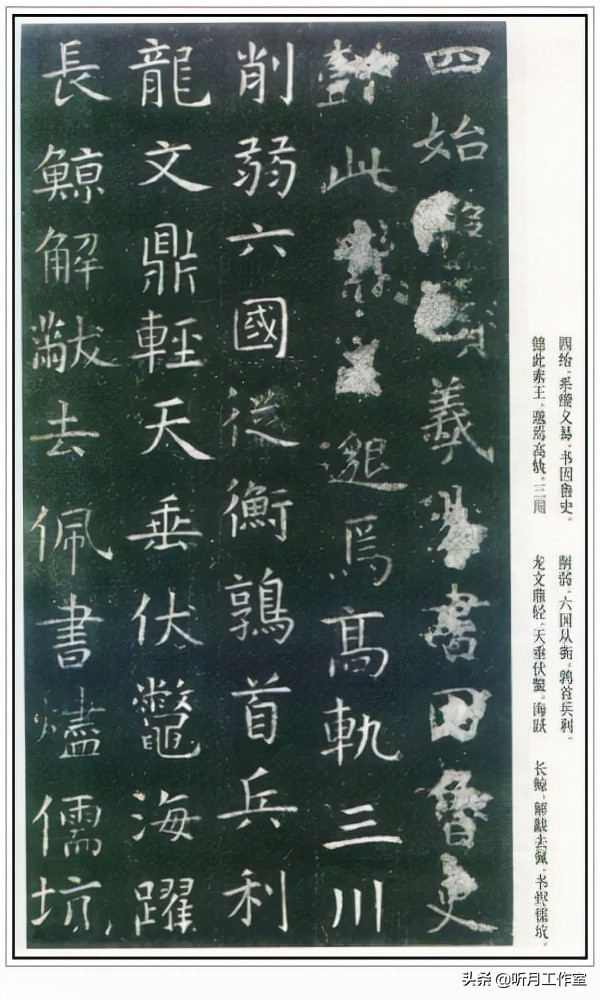 四始羲易書因魯史
懿此素王邈焉高軌三川
削弱六國從衡鶉首兵利
龍文鼎輕天垂伏鼈海躍
長鯨解黻去佩書燼儒坑
四始,系赞义易,书因鲁史。
懿此素王,邈焉高轨。三川
削弱,六国从衡,鹑首兵利。
龙文鼎轻,天垂伏鳖,海跃
长鲸,解黻去佩,书烬儒坑。
头条 @听月工作室